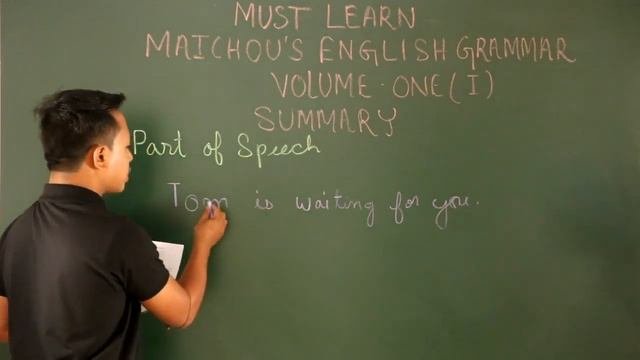 MUST LEARN
MAICHOU'S ENGLISH GRAMMAR
VOLUME-ONE (I)
SUMMARY
Part of Speech
Tom is waiting for you.